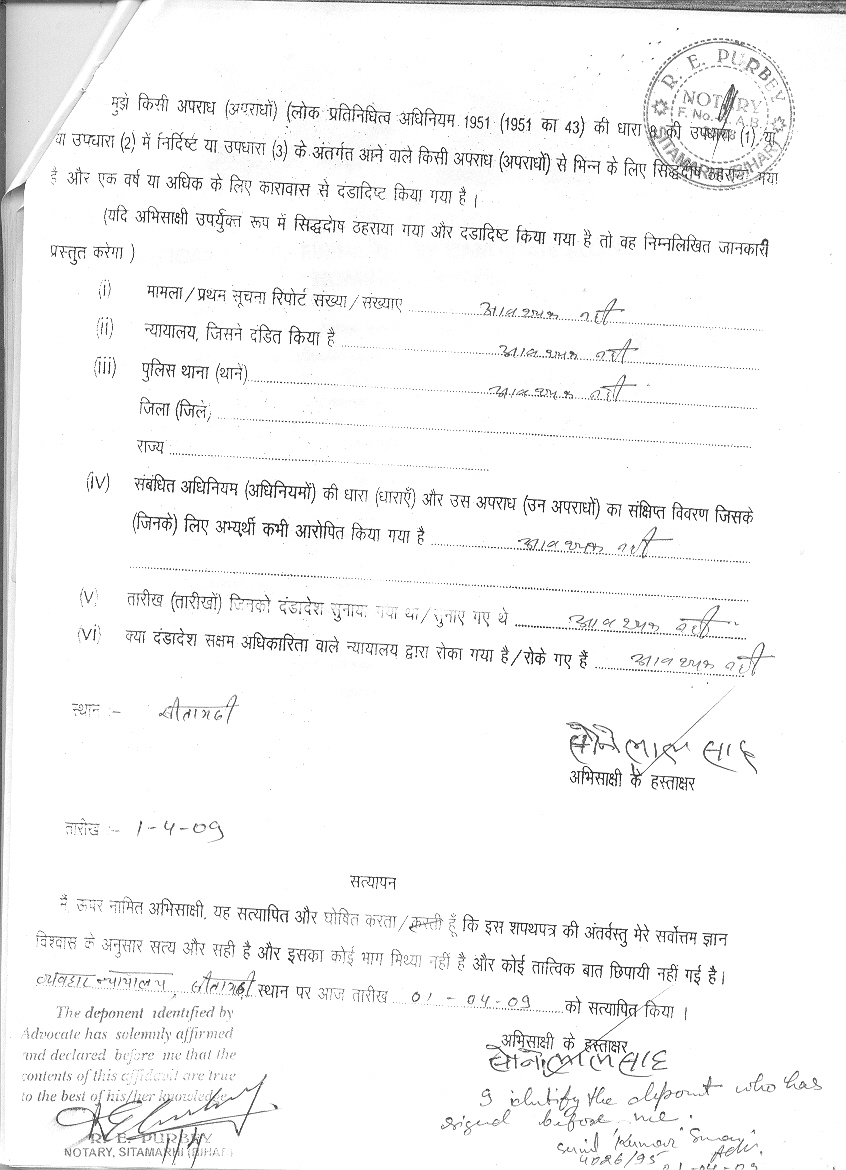 R. E. PURBEY
NOTARY
SITAMARHI (BIHAR)
मुझे किसी अपराध (अपराधों) (लोक प्रतिनिधित्व अधिनियम 1951 (1951 का 43) की धारा 8 की उपधारा (1) या
या उपधारा (2) में निर्दिष्ट या उपधारा (3) के अंतर्गत आने वाले किसी अपराध (अपराधों) से भिन्न के लिए सिद्धदोष ठहराया गया
है और एक वर्ष या अधिक के लिए कारावास से दंडादिष्ट किया गया है ।
(यदि अभिसाक्षी उपर्युक्त रूप में सिद्धदोष ठहराया गया और दडादिष्ट किया गया है तो वह निम्नलिखित जानकारी
प्रस्तुत करेगा )
(i) मामला / प्रथम सूचना रिपोर्ट संख्या / संख्याए आवश्यक नहीं
(ii) न्यायालय, जिसने दंडित किया है आवश्यक नहीं
(iii) पुलिस थाना (थाने) आवश्यक नहीं
जिला (जिले)
राज्य
(iv) संबंधित अधिनियम (अधिनियमों) की धारा (धाराएँ) और उस अपराध (उन अपराधों) का संक्षिप्त विवरण जिसके
(जिनके) लिए अभ्यर्थी कभी आरोपित किया गया है आवश्यक नहीं
(v) तारीख (तारीखों) जिनको दंडादेश सुनाया गया था / सुनाए गए थे आवश्यक नहीं
(vi) क्या दंडादेश सक्षम अधिकारिता वाले न्यायालय द्वारा रोका गया है / रोके गए हैं आवश्यक नहीं
स्थान :- सीतामढी
सोनेलाल साह
अभिसाक्षी के हस्ताक्षर
तारीख :- 1-4-09
सत्यापन
मैं, ऊपर नामित अभिसाक्षी, यह सत्यापित और घोषित करता / करती हूँ कि इस शपथपत्र की अंतर्वस्तु मेरे सर्वोत्तम ज्ञान
विश्वास के अनुसार सत्य और सही है और इसका कोई भाग मिथ्या नहीं है और कोई तात्विक बात छिपायी नहीं गई है।
व्यवहार न्यायालय, सीतामढी स्थान पर आज तारीख 01-04-09 को सत्यापित किया ।
अभिसाक्षी के हस्ताक्षर
सोनेलाल साह
The deponent identified by
Advocate has solemnly affirmed
and declared before me that the
contents of this affidavit are true
to the best of his/her knowledge
R. E. PURBEY
NOTARY, SITAMARHI (BIHAR)
I identify the deponent who has
signed before me.
Kumar
Adv.
4026/95
01-04-09